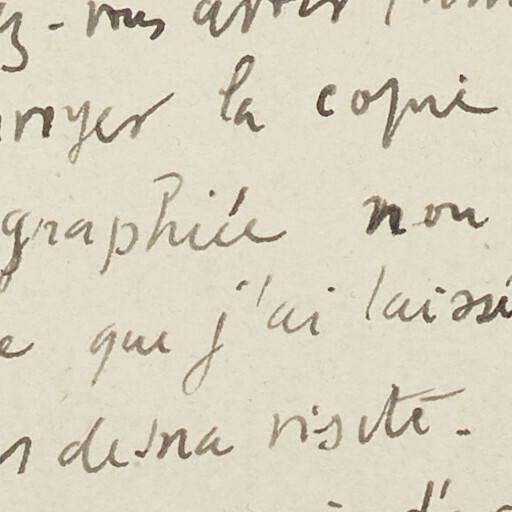 z-vous
la copie
graphiée non
e que j'ai laissé
de ma visite.